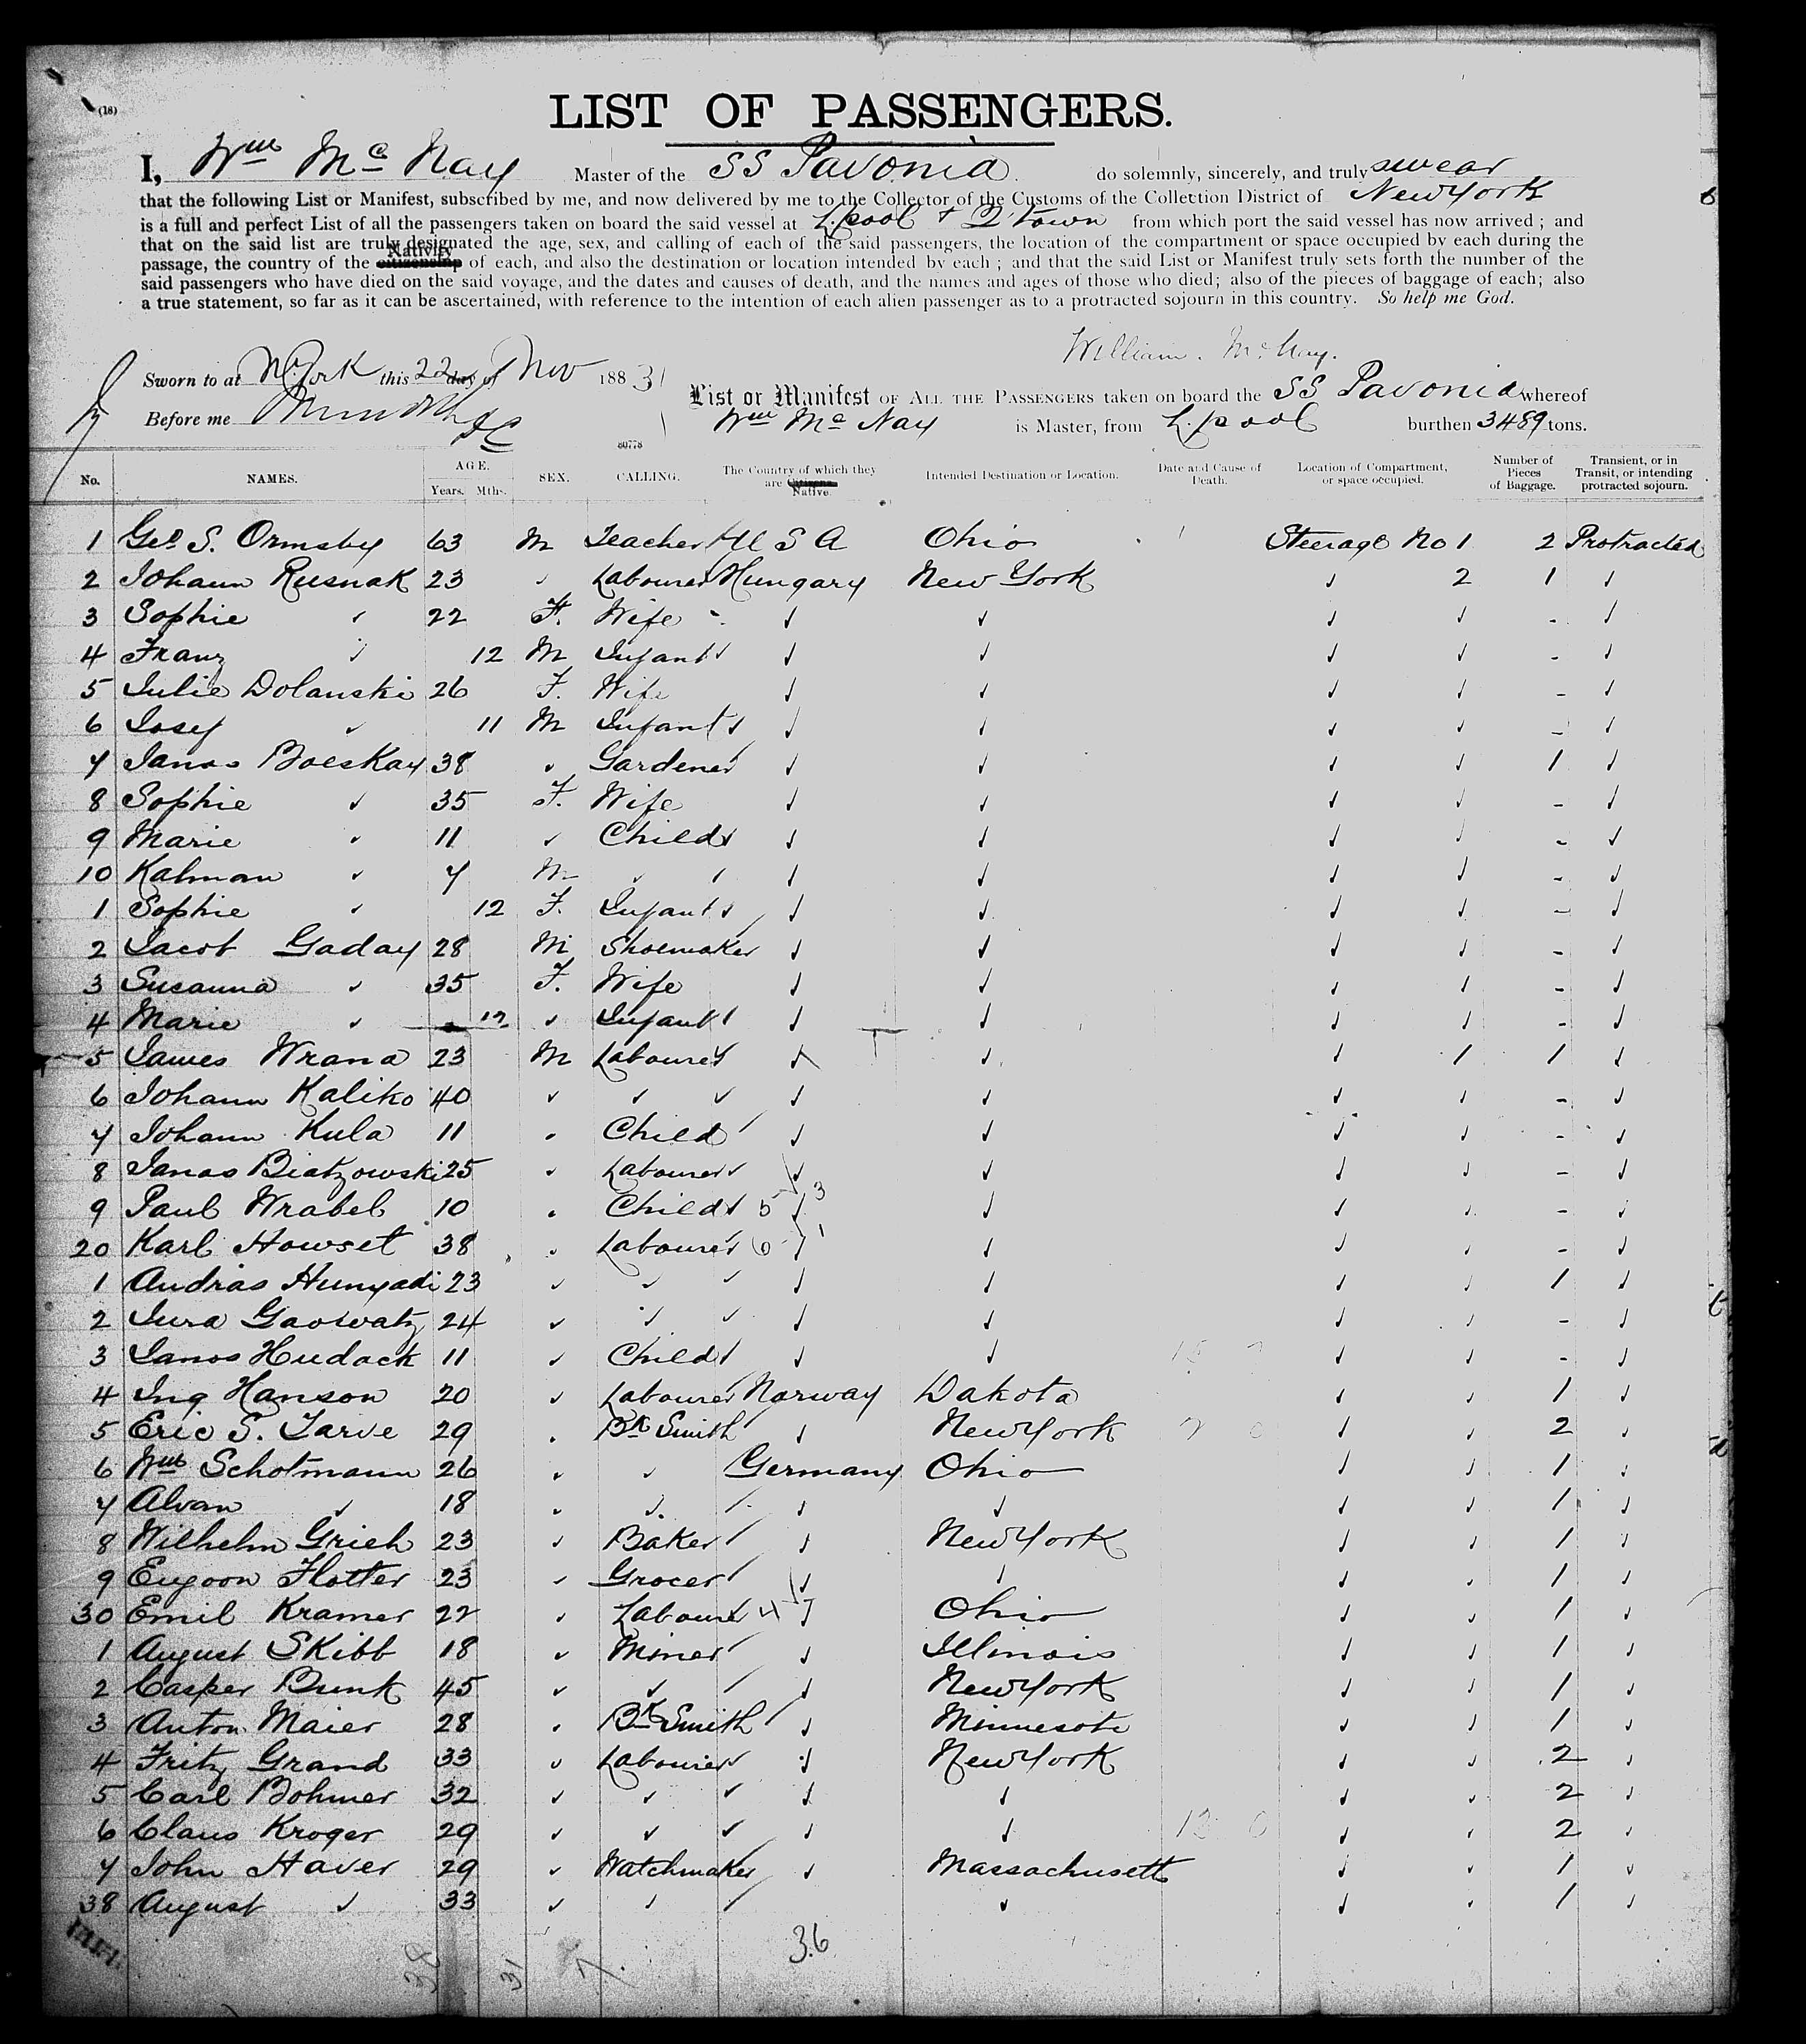 (18)
LIST OF PASSENGERS.
I, Wm Mc Nay Master of the SS Pavonia do solemnly, sincerely, and truly swear
that the following List or Manifest, subscribed by me, and now delivered by me to the Collector of the Customs of the Collection District of New York
is a full and perfect List of all the passengers taken on board the said vessel at L.pool + Q'town from which port the said vessel has now arrived; and
that on the said list are truly designated the age, sex, and calling of each of the said passengers, the location of the compartment or space occupied by each during the
Nativity
passage, the country of the citizenship of each, and also the destination or location intended by each; and that the said List or Manifest truly sets forth the number of the
said passengers who have died on the said voyage, and the dates and causes of death, and the names and ages of those who died; also of the pieces of baggage of each; also
a true statement, so far as it can be ascertained, with reference to the intention of each alien passenger as to a protracted sojourn in this country. So help me God.
William. McNay.
Sworn to at N. York this 22 day of Nov 1883
List or Manifest OF ALL THE PASSENGERS taken on board the SS Pavonia whereof
Before me
Wm Mc Nay is Master, from L.pool burthen 3489 tons.
80778
No. NAMES. AGE. Years. Mths. SEX. CALLING. The Country of which they are Citizens. Native. Intended Destination or Location. Date and Cause of Death. Location of Compartment, or space occupied. Number of Pieces of Baggage. Transient, or in Transit, or intending protracted sojourn.
1 Geo S. Ormsby 63 M Teacher U S A Ohio Steerage No 1 2 Protracted
2 Johann Rusnak 23 ✓ Labourer Hungary New York ✓ 2 1 ✓
3 Sophie ✓ 22 F. Wife ✓ ✓ ✓ ✓ - ✓
4 Franz ✓ 12 M Infant ✓ ✓ ✓ ✓ - ✓
5 Julie Dolanski 26 F. Wife ✓ ✓ ✓ ✓ - ✓
6 Josef ✓ 11 M Infant ✓ ✓ ✓ ✓ - ✓
7 Janos Boeskay 38 ✓ Gardener ✓ ✓ ✓ ✓ 1 ✓
8 Sophie ✓ 35 F. Wife ✓ ✓ ✓ ✓ - ✓
9 Marie ✓ 11 ✓ Child ✓ ✓ ✓ ✓ - ✓
10 Kalman ✓ 7 M ✓ ✓ ✓ ✓ ✓ - ✓
1 Sophie ✓ 12 F. Infant ✓ ✓ ✓ ✓ - ✓
2 Jacob Gaday 28 M Shoemaker ✓ ✓ ✓ ✓ - ✓
3 Susanna ✓ 35 F. Wife ✓ ✓ ✓ ✓ - ✓
4 Marie ✓ 12 ✓ Infant ✓ ✓ ✓ ✓ - ✓
5 James Wrana 23 M Labourer ✓ ✓ ✓ 1 1 ✓
6 Johann Kaliko 40 ✓ ✓ ✓ ✓ ✓ ✓ - ✓
7 Johann Kula 11 ✓ Child ✓ ✓ ✓ ✓ - ✓
8 Janos Biatzowski 25 ✓ Labourer ✓ ✓ ✓ ✓ - ✓
9 Paul Wrabel 10 ✓ Child ✓ ✓ ✓ ✓ - ✓
20 Karl Howset 38 ✓ Labourer ✓ ✓ ✓ ✓ - ✓
1 Andras Hunyadi 23 ✓ ✓ ✓ ✓ ✓ ✓ 1 ✓
2 Jura Gaowatz 24 ✓ ✓ ✓ ✓ ✓ ✓ - ✓
3 Janos Hudack 11 ✓ Child ✓ ✓ ✓ ✓ - ✓
4 Ing Hanson 20 ✓ Labourer Norway Dakota ✓ ✓ 1 ✓
5 Eric S. Tarve 29 ✓ Bk Smith ✓ New York ✓ ✓ 2 ✓
6 Wm Schotmann 26 ✓ ✓ Germany Ohio ✓ ✓ 1 ✓
7 Alvan ✓ 18 ✓ ✓ ✓ ✓ ✓ ✓ 1 ✓
8 Wilhelm Grieh 23 ✓ Baker ✓ New York ✓ ✓ 1 ✓
9 Eugoon Flotter 23 ✓ Grocer ✓ ✓ ✓ ✓ 1 ✓
30 Emil Kramer 22 ✓ Labourer ✓ Ohio ✓ ✓ 1 ✓
1 August Skibb 18 ✓ Miner ✓ Illinois ✓ ✓ 1 ✓
2 Casper Bunk 45 ✓ ✓ ✓ New York ✓ ✓ 1 ✓
3 Anton Maier 28 ✓ Bk Smith ✓ Minnesota ✓ ✓ 1 ✓
4 Fritz Grand 33 ✓ Labourer ✓ New York ✓ ✓ 2 ✓
5 Carl Bohmer 32 ✓ ✓ ✓ ✓ ✓ ✓ 2 ✓
6 Claus Kroger 29 ✓ ✓ ✓ ✓ ✓ ✓ 2 ✓
7 John Haver 29 ✓ Watchmaker ✓ Massachusetts ✓ ✓ 1 ✓
38 August ✓ 33 ✓ ✓ ✓ ✓ ✓ ✓ 1 ✓
36
38 31 7